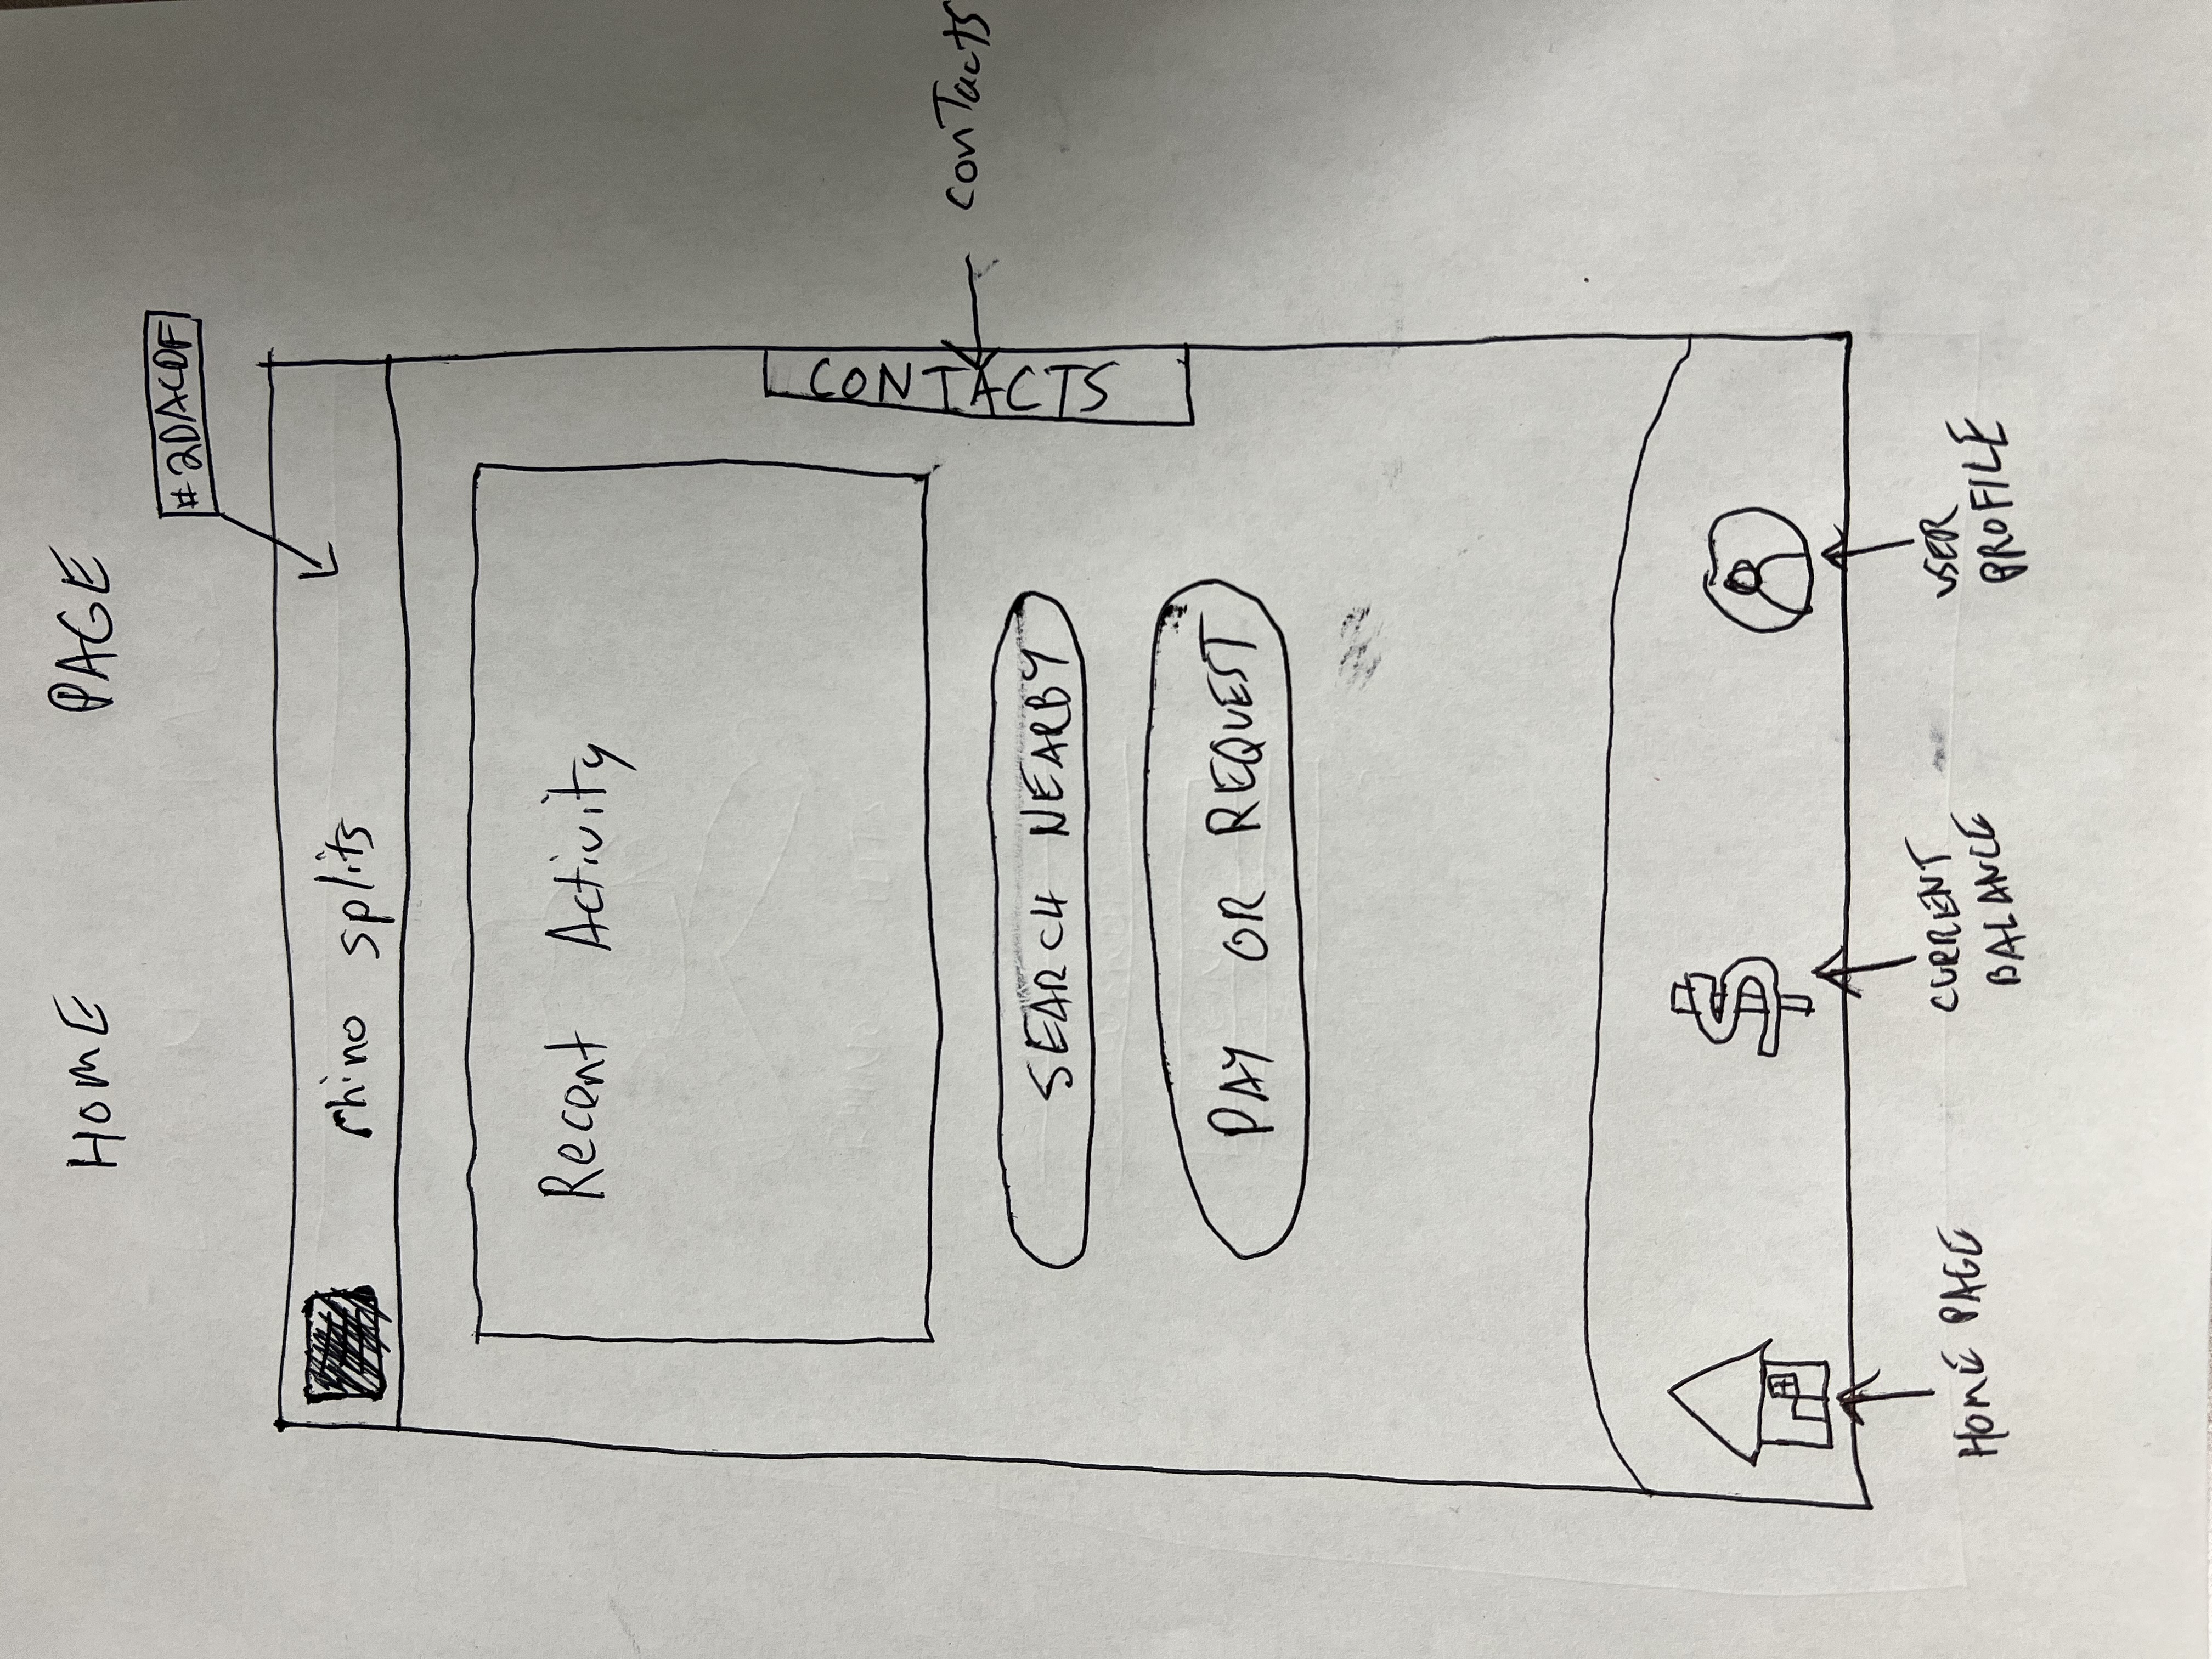 HOME PAGE
#2DACDF
rhino splits
Recent Activity
CONTACTS
contacts
SEARCH NEARBY
PAY OR REQUEST
$
HOME PAGE
CURRENT
BALANCE
USER
PROFILE